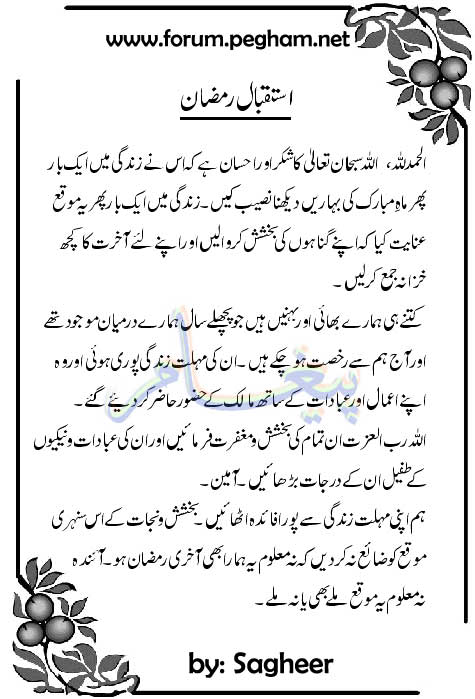 www.forum.pegham.net
استقبال رمضان
الحمدللہ، اللہ سبحان تعالیٰ کا شکر اور احسان ہے کہ اس نے زندگی میں ایک بار
پھر ماہِ مبارک کی بہاریں دیکھنا نصیب کیں۔ زندگی میں ایک بار پھر یہ موقع
عنایت کیا کہ اپنے گناہوں کی بخشش کروالیں اور اپنے لئے آخرت کا کچھ
خزانہ جمع کرلیں۔
کتنے ہی ہمارے بھائی اور بہنیں ہیں جو پچھلے سال ہمارے درمیان موجود تھے
اور آج ہم سے رخصت ہوچکے ہیں۔ ان کی مہلت زندگی پوری ہوئی اور وہ
اپنے اعمال اور عبادات کے ساتھ مالک کے حضور حاضر کردیئے گئے۔
اللہ رب العزت ان تمام کی بخشش و مغفرت فرمائیں اور ان کی عبادات و نیکیوں
کے طفیل ان کے درجات بڑھائیں۔ آمین۔
ہم اپنی مہلت زندگی سے پورا فائدہ اٹھائیں۔ بخشش و نجات کے اس سنہری
موقع کو ضائع نہ کردیں کہ نہ معلوم یہ ہمارا بھی آخری رمضان ہو۔ آئندہ
نہ معلوم یہ موقع ملے بھی یا نہ ملے۔
پیغام
by: Sagheer